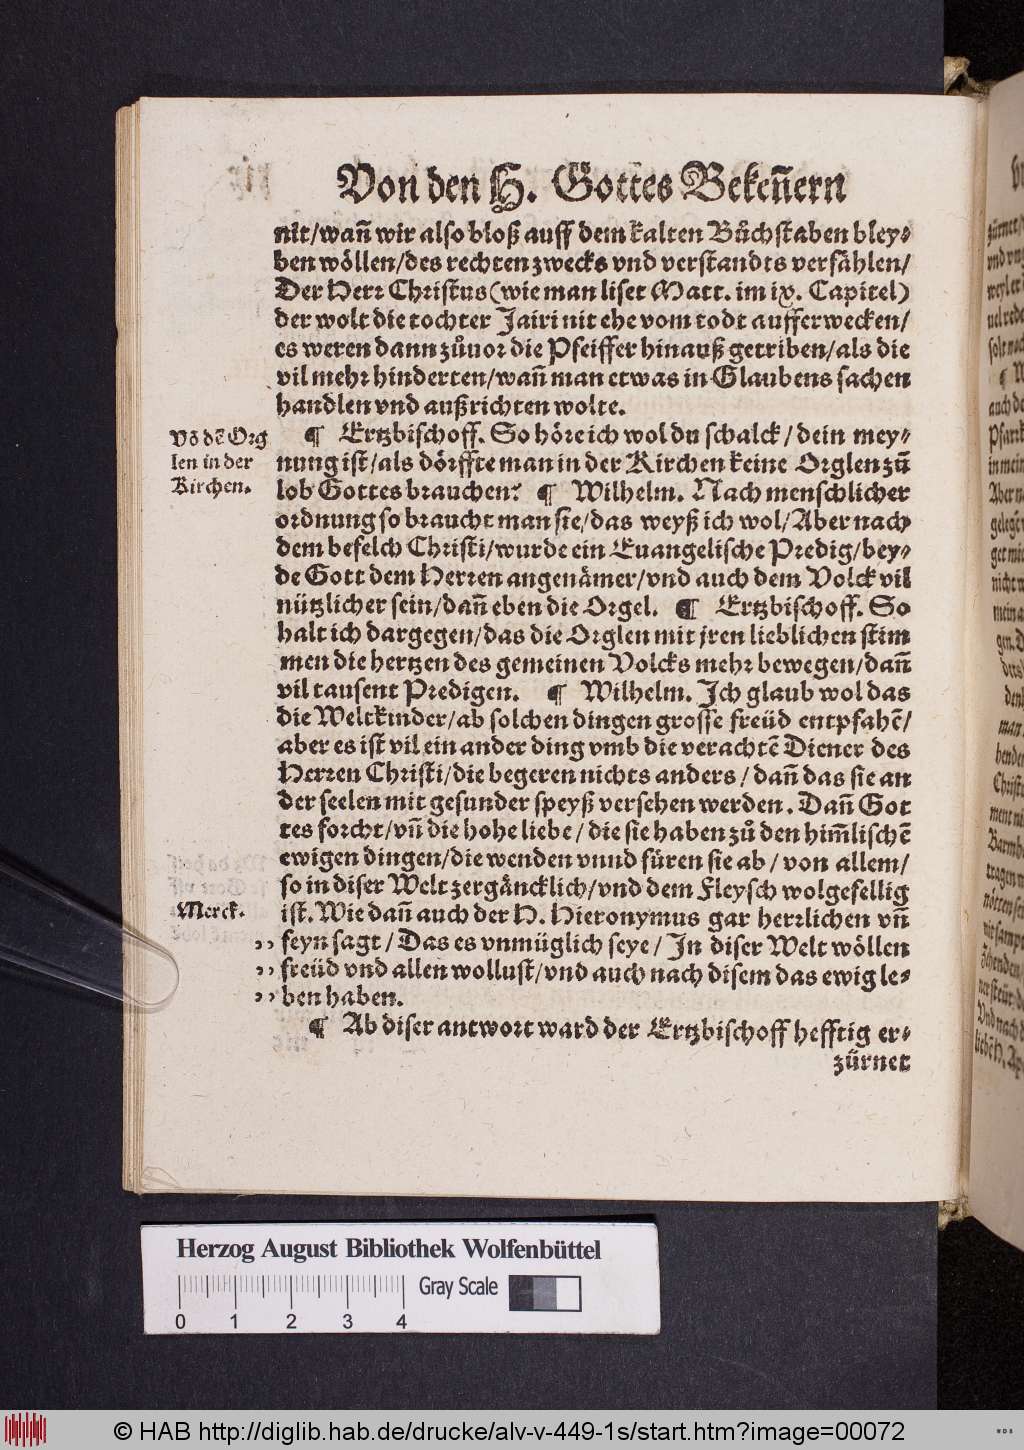 Von den H. Gottes Bekeñern
nit/wañ wir also bloß auff dem kalten Bůchstaben bley⸗
ben wöllen/des rechten zwecks vnd verstandts verfählen/
Der Herr Christus (wie man liset Matt. im ix. Capitel)
der wolt die tochter Jairi nit ehe vom todt aufferwecken/
es weren dann zůuor die Pfeiffer hinauß getriben/als die
vil mehr hinderten/wañ man etwas in Glaubens sachen
handlen vnd außrichten wolte.
Võ dẽ Org
len in der
Kirchen.
¶ Ertzbischoff. So höre ich wol du schalck/dein mey⸗
nung ist/als dörffte man in der Kirchen keine Orglen zů
lob Gottes brauchen? ¶ Wilhelm. Nach menschlicher
ordnung so braucht man sie/das weyß ich wol/Aber nach
dem befelch Christi/wurde ein Euangelische Predig/bey⸗
de Gott dem Herren angenämer/vnd auch dem Volck vil
nützlicher sein/dañ eben die Orgel. ¶ Ertzbischoff. So
halt ich dargegen/das die Orglen mit jren lieblichen stim
men die hertzen des gemeinen Volcks mehr bewegen/dañ
vil tausent Predigen. ¶ Wilhelm. Ich glaub wol das
die Weltkinder/ab solchen dingen grosse freüd entpfahẽ/
aber es ist vil ein ander ding vmb die verachtẽ Diener des
Herren Christi/die begeren nichts anders/dañ das sie an
der seelen mit gesunder speyß versehen werden. Dañ Got
tes forcht/vñ die hohe liebe/die sie haben zů den him̃lischẽ
ewigen dingen/die wenden vnnd füren sie ab/von allem/
so in diser Welt zergäncklich/vnd dem Fleysch wolgefellig
Merck.
ist. Wie dañ auch der H. Hieronymus gar herzlichen vñ
,, feyn sagt/Das es vnmüglich seye/In diser Welt wöllen
,, freüd vnd allen wollust/vnd auch nach disem das ewig le⸗
,, ben haben.
¶ Ab diser antwort ward der Ertzbischoff hefftig er⸗
zürnet
Herzog August Bibliothek Wolfenbüttel
Gray Scale
0 1 2 3 4
© HAB http://diglib.hab.de/drucke/alv-v-449-1s/start.htm?image=00072